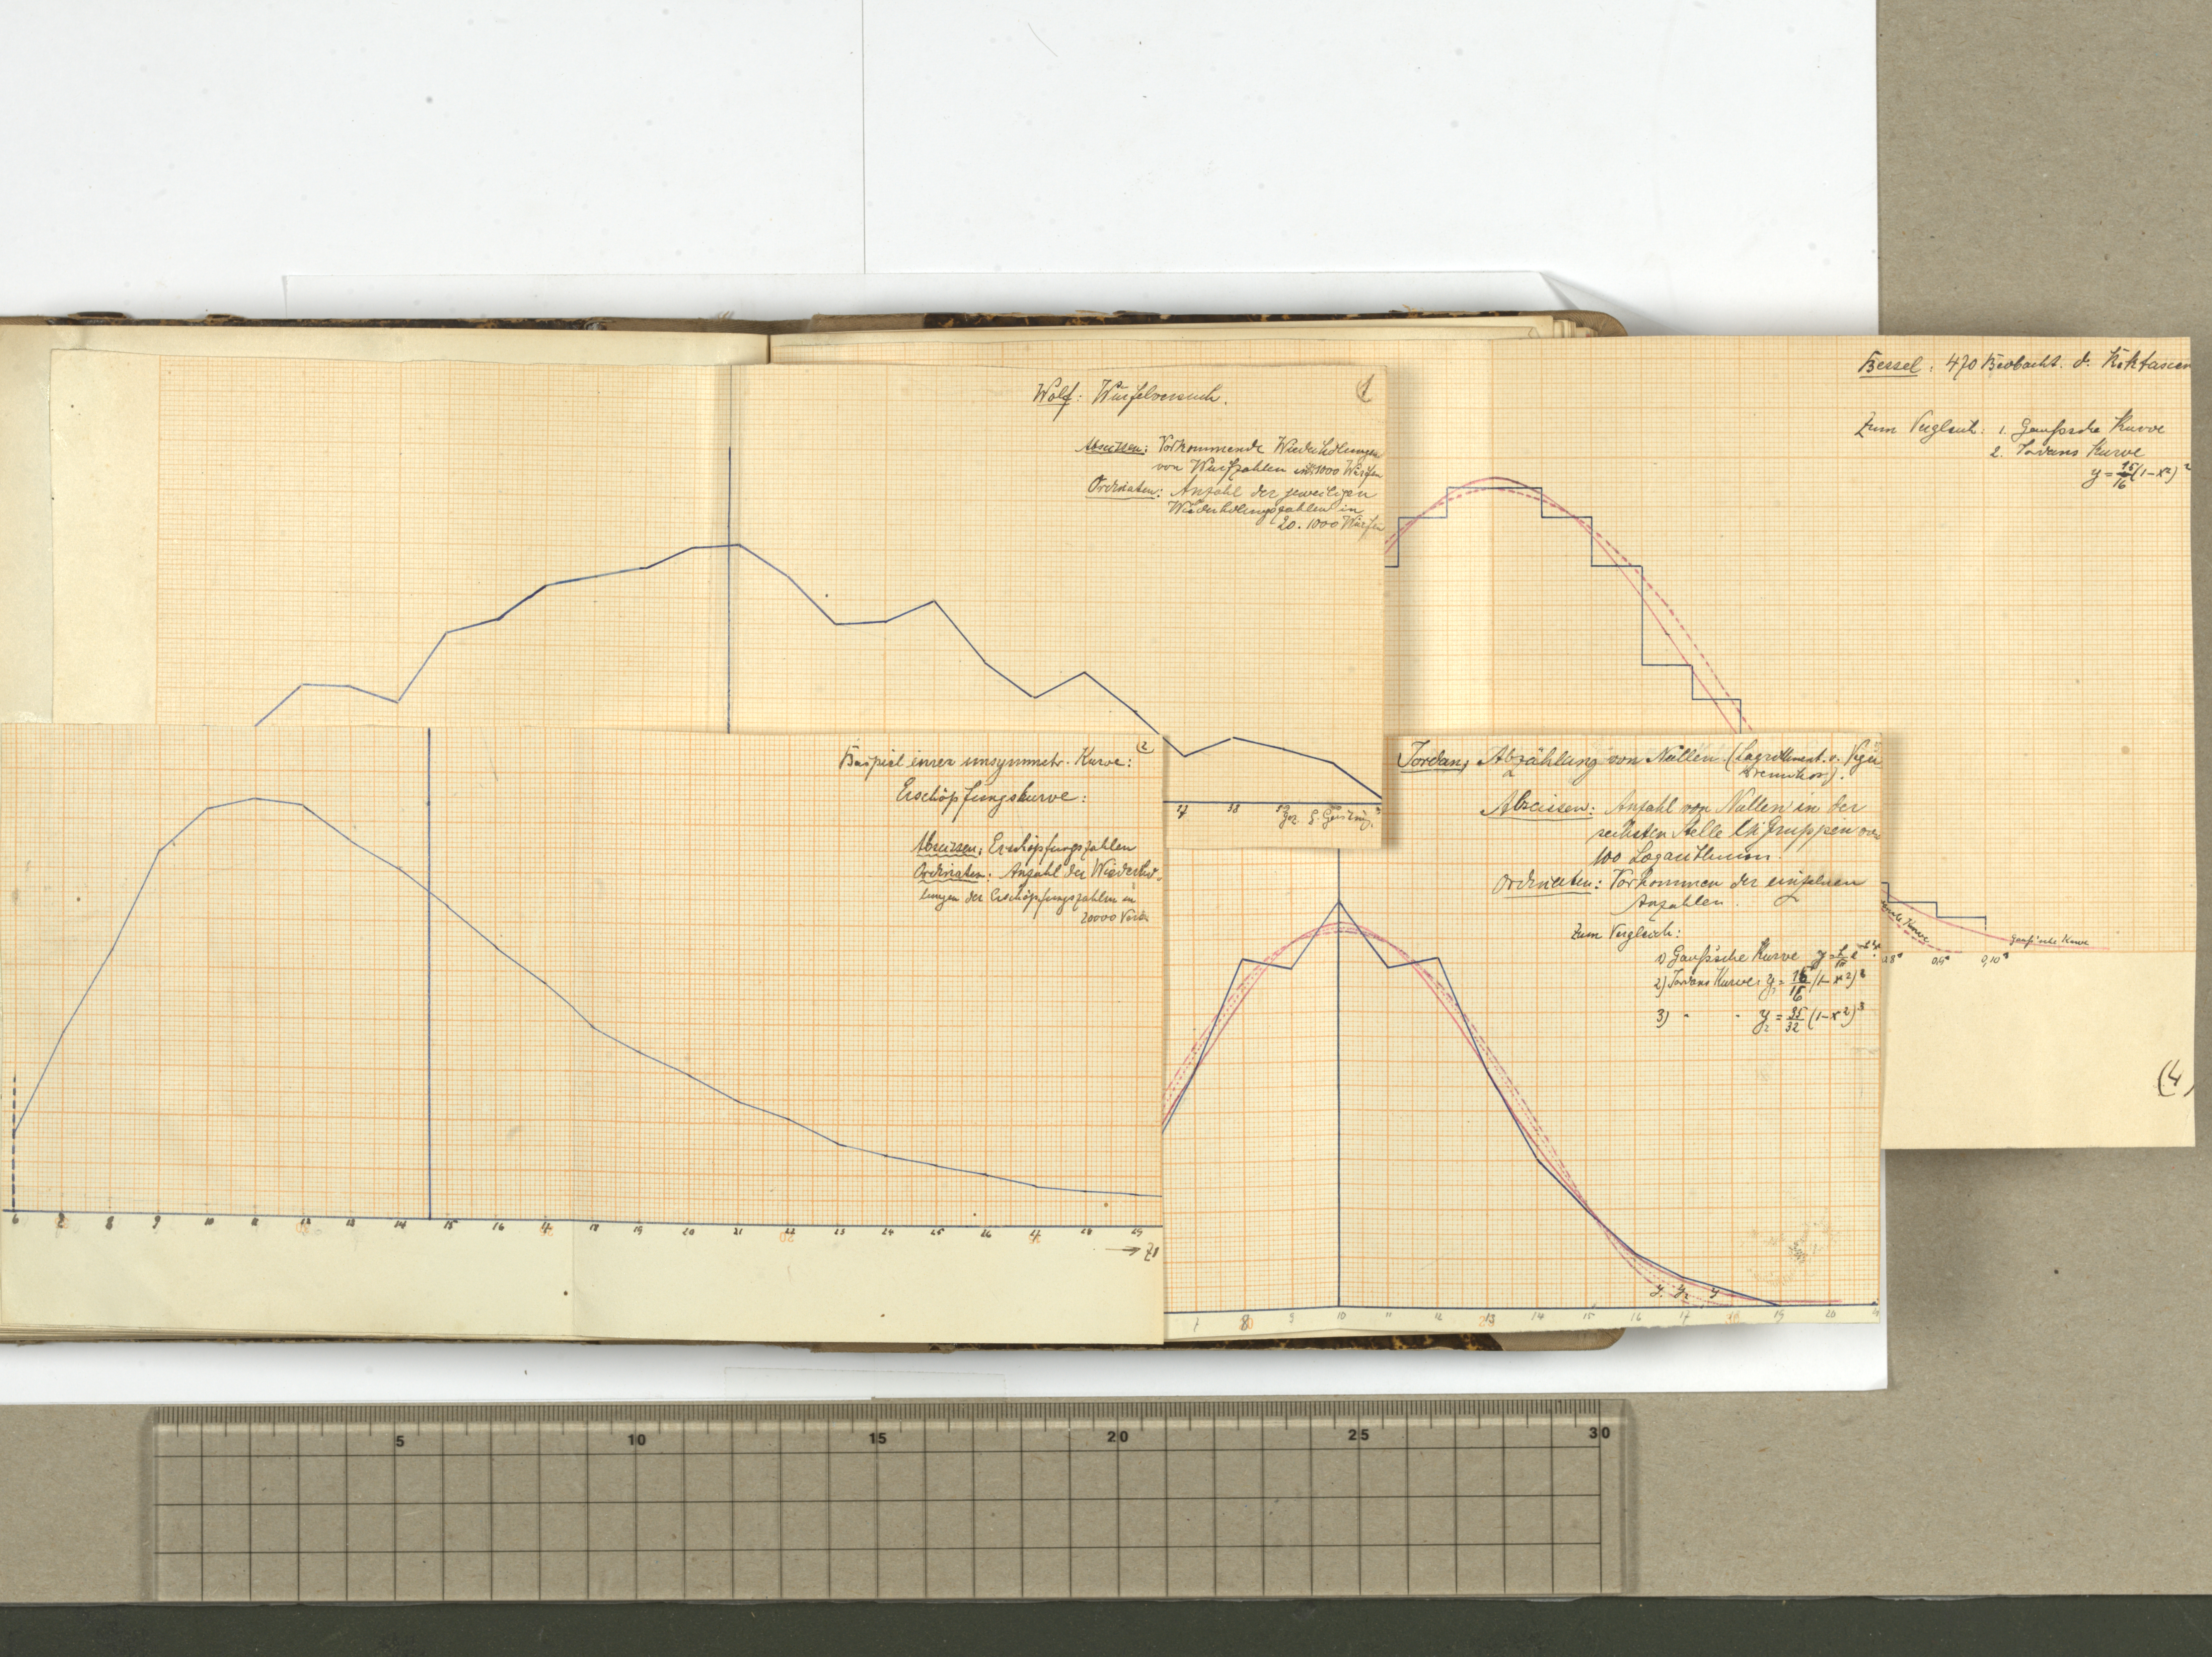 Wolf: Würfelversuch.
1
Abscissen: Vorkommende Wiederholungen
von Wurfzahlen in 1000 Würfen
Ordinaten: Anzahl der jeweiligen
Wiederholungszahlen in
20.1000 Würfen
37 38 39
gez. G.
Bessel: 470 Beobacht. d. Rektascen
Zum Vergleich: 1. Gaußsche Kurve
2. Jordans Kurve
y = 15/16 (1-x²)²
Kurve
Gauß'sche Kurve
0,9 0,10
(4)
2
Beispiel einer unsymmetr. Kurve:
Erschöpfungskurve:
Abscissen: Erschöpfungszahlen
Ordinaten: Anzahl der Wiederho-
lungen der Erschöpfungszahlen in
20000
6 7 8 9 10 11 12 13 14 15 16 17 18 19 20 21 22 23 24 25 26 27 28 29
Jordan, Abzählung von Nullen (Logarithment. v. Vega
Abscissen: Anzahl von Nullen in der
sechsten Stelle bei Gruppen von
100 Logarithmen.
Ordinaten: Vorkommen der einzelnen
Anzahlen.
Zum Vergleich:
1) Gauß'sche Kurve
2) Jordans Kurve: y₁ = 15/16 (1-x²)²
3) " " y₂ = 35/32 (1-x²)³
y₁ y₂ y
7 8 9 10 11 12 13 14 15 16 17 18 19 20
5 10 15 20 25 30